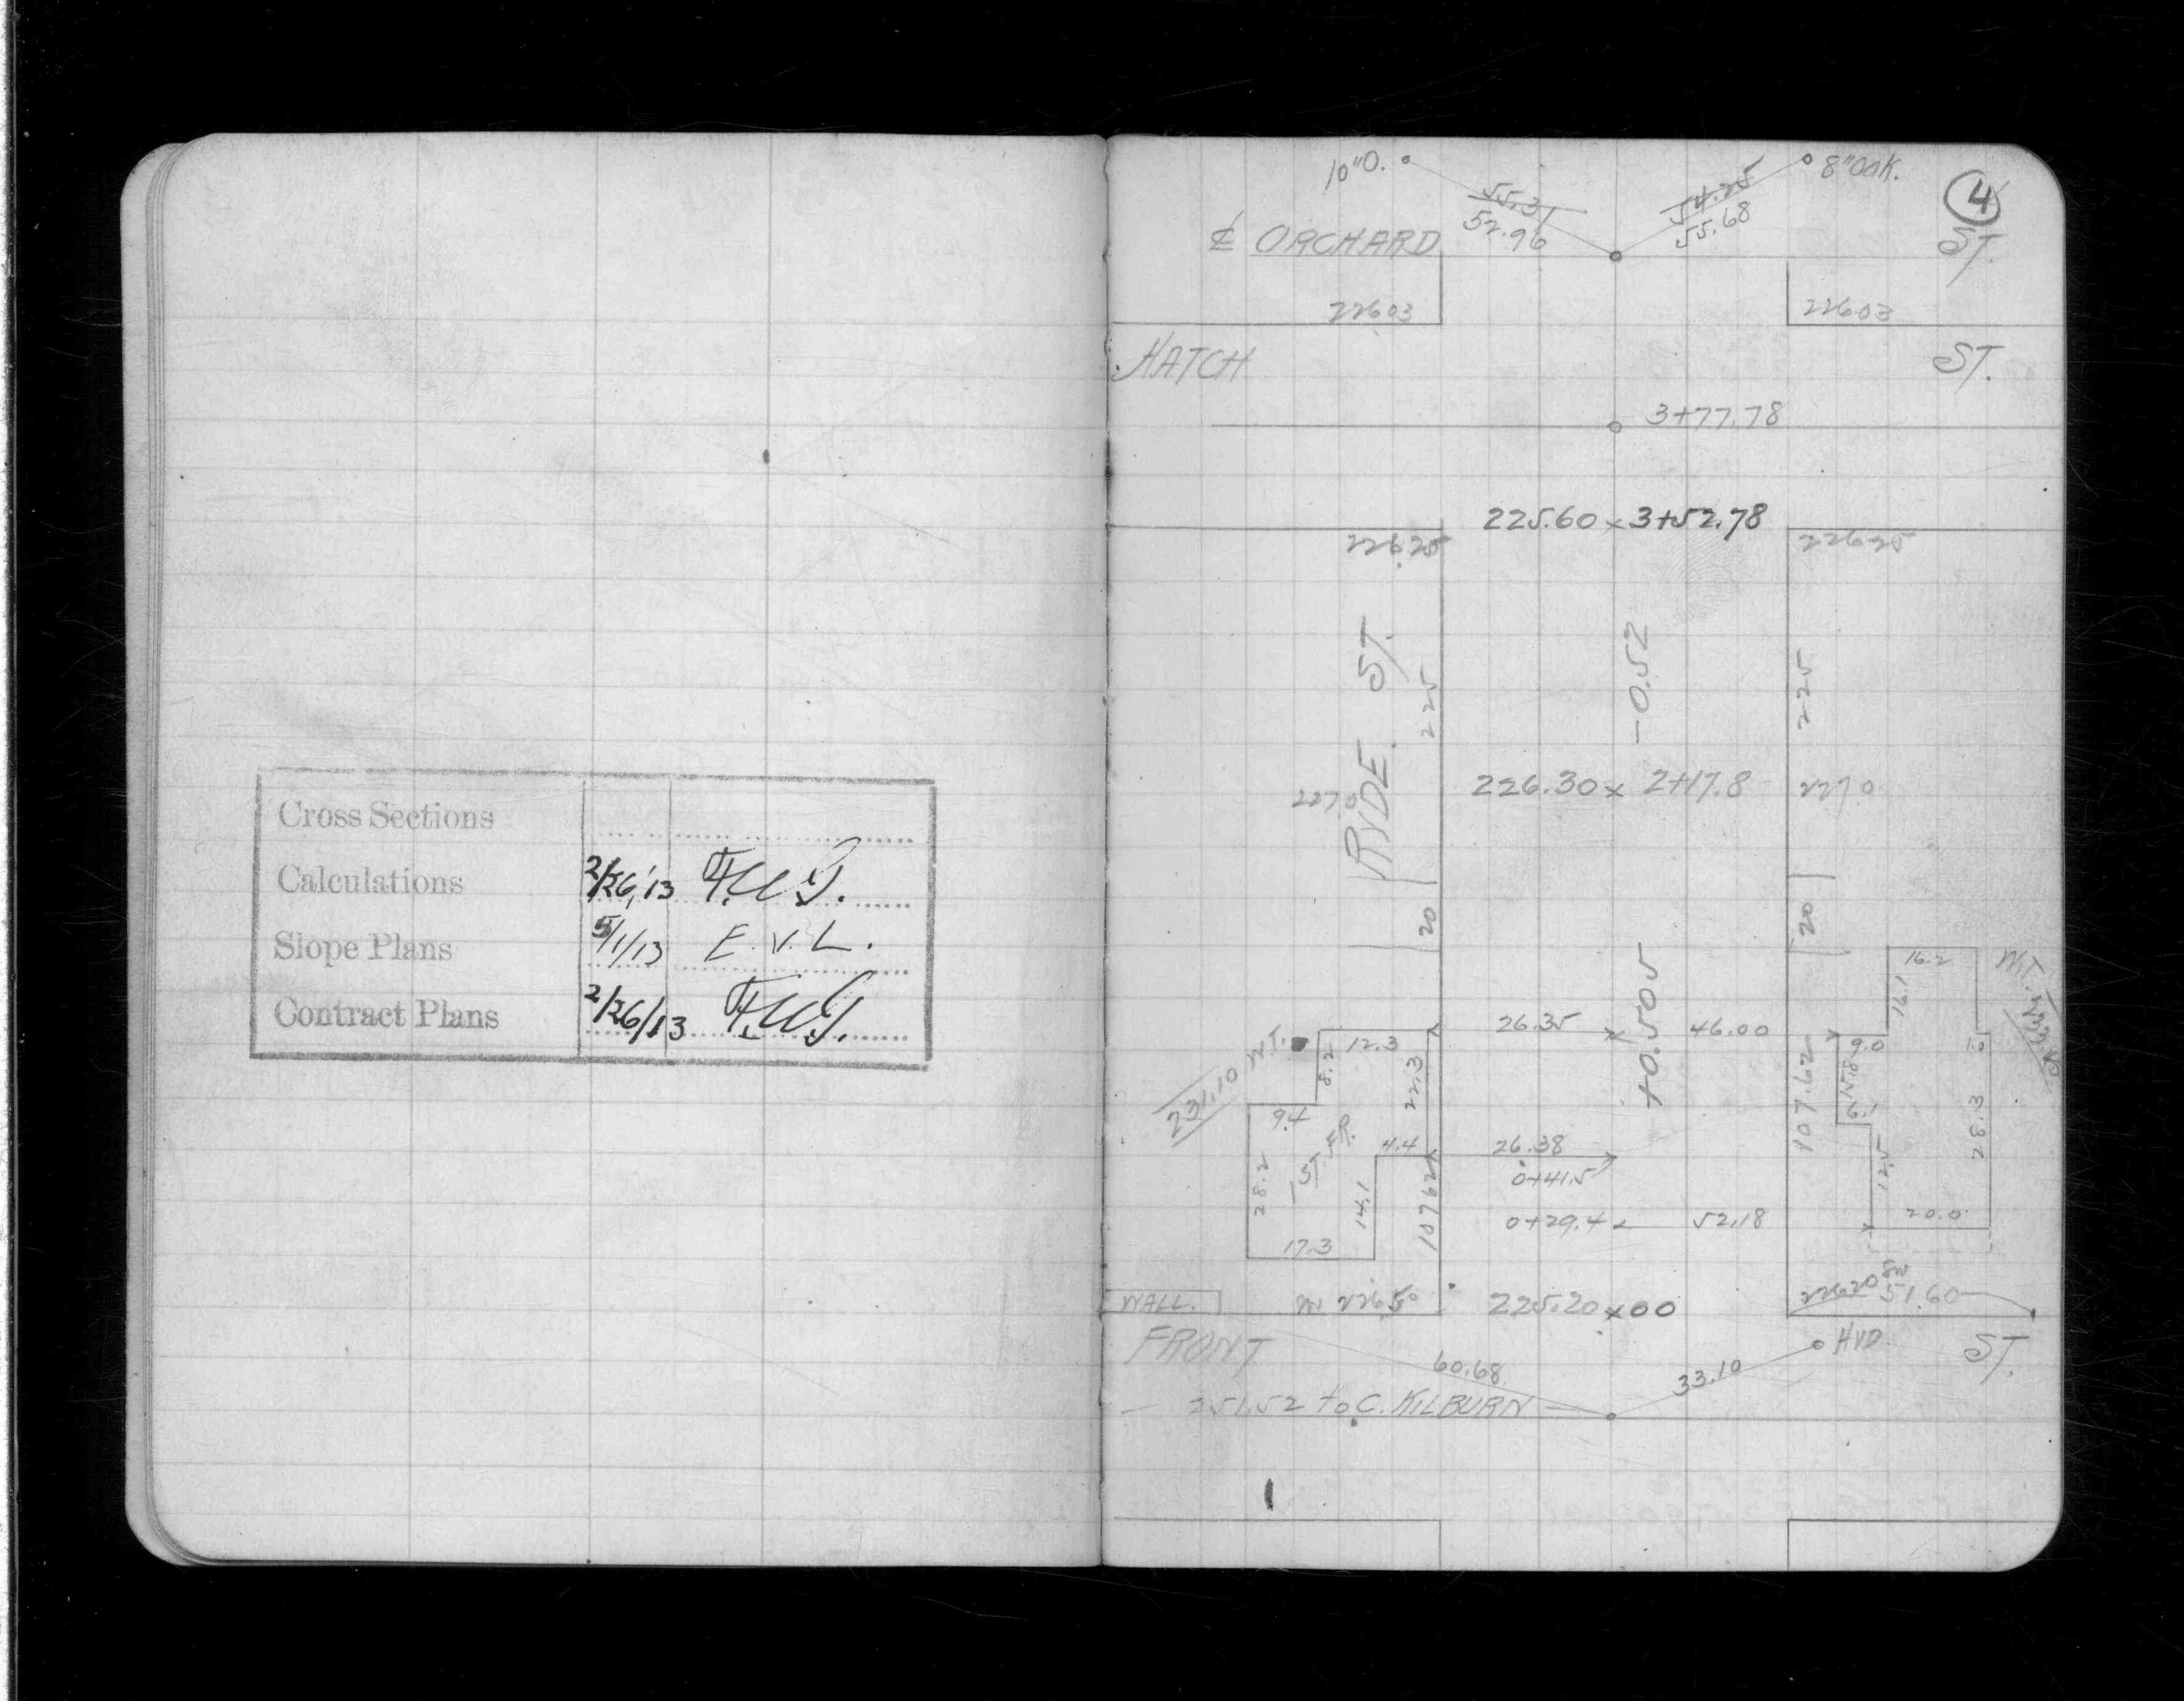 Cross Sections
Calculations 2/26,'13 F.W.J.
Slope Plans 5/1/13 E. V. L.
Contract Plans 2/26/13 F.W.J.
4
10"O. 8"Oak.
55.31 54.25
52.96 55.68
℄ ORCHARD ST.
226.03 226.03
HATCH ST.
3+77.78
225.60 x 3+52.78
226.25 226.25
RYDE ST.
225 -0.52 225
227.0 226.30 x 2+17.8 227.0
20 20
+0.505
16.2
16.1
26.35 46.00
12.3 9.0 1.0
8.2 22.3 107.62 15.8
231.10
9.4 6.1
28.3
4.4 26.38
0+41.5
28.2 1 ST. FR. 14.1 107.62 12.5
0+29.4 52.18 20.0
17.3
WALL. 226.50 225.20 x 00 226.20 51.60
FRONT ST.
HYD.
60.68 33.10
251.52 to C. KILBURN